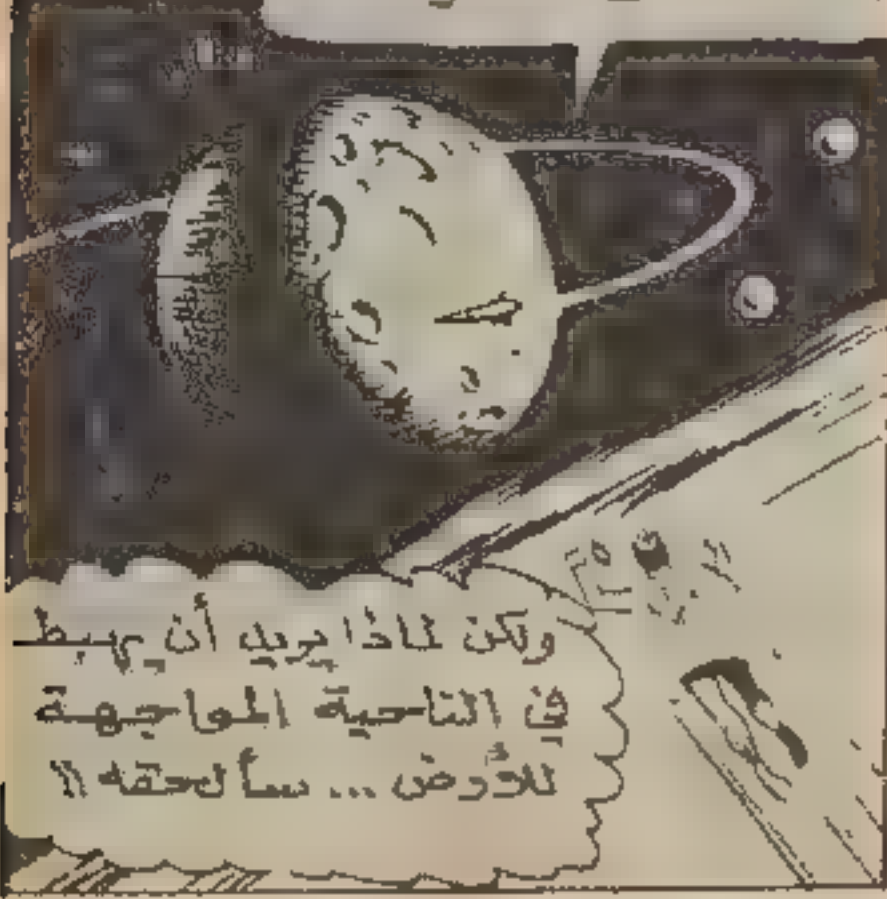 ولكن لماذا يريد أن يهبط
في الناحية المواجهة
للأرض ... سألحقه !!